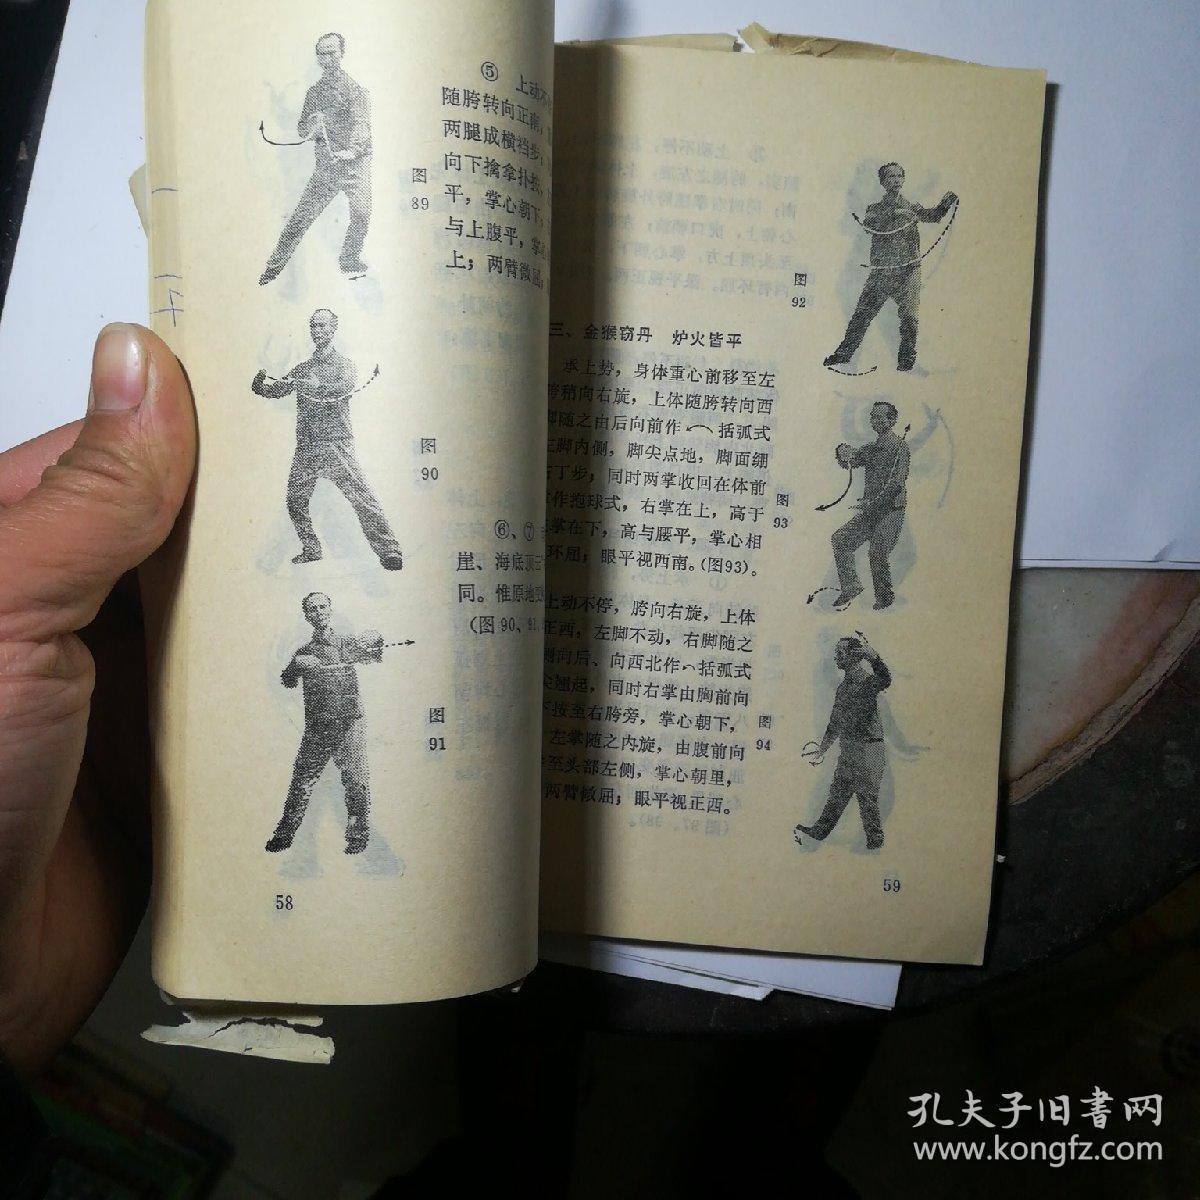 ⑤ 上动不
随胯转向正南，
两腿成横裆步；
向下擒拿扑按，
平，掌心朝下；
与上腹平，掌心
上；两臂微屈；
图
89
图
90
⑥、⑦
崖、海底顶云
同。惟原地
（图90、91
图
91
58
图
92
三、金猴窃丹 炉火皆平
承上势，身体重心前移至左
胯稍向右旋，上体随胯转向西
脚随之由后向前作 括弧式
左脚内侧，脚尖点地，脚面绷
右丁步；同时两掌收回在体前
作抱球式，右掌在上，高于
掌在下，高与腰平，掌心相
环屈；眼平视西南。（图93）。
图
93
上动不停，胯向右旋，上体
正西，左脚不动，右脚随之
侧向后、向西北作 括弧式
尖翘起，同时右掌由胸前向
下按至右胯旁，掌心朝下，
左掌随之内旋，由腹前向
至头部左侧，掌心朝里，
两臂微屈；眼平视正西。
图
94
59
孔夫子旧書网
www.kongfz.com